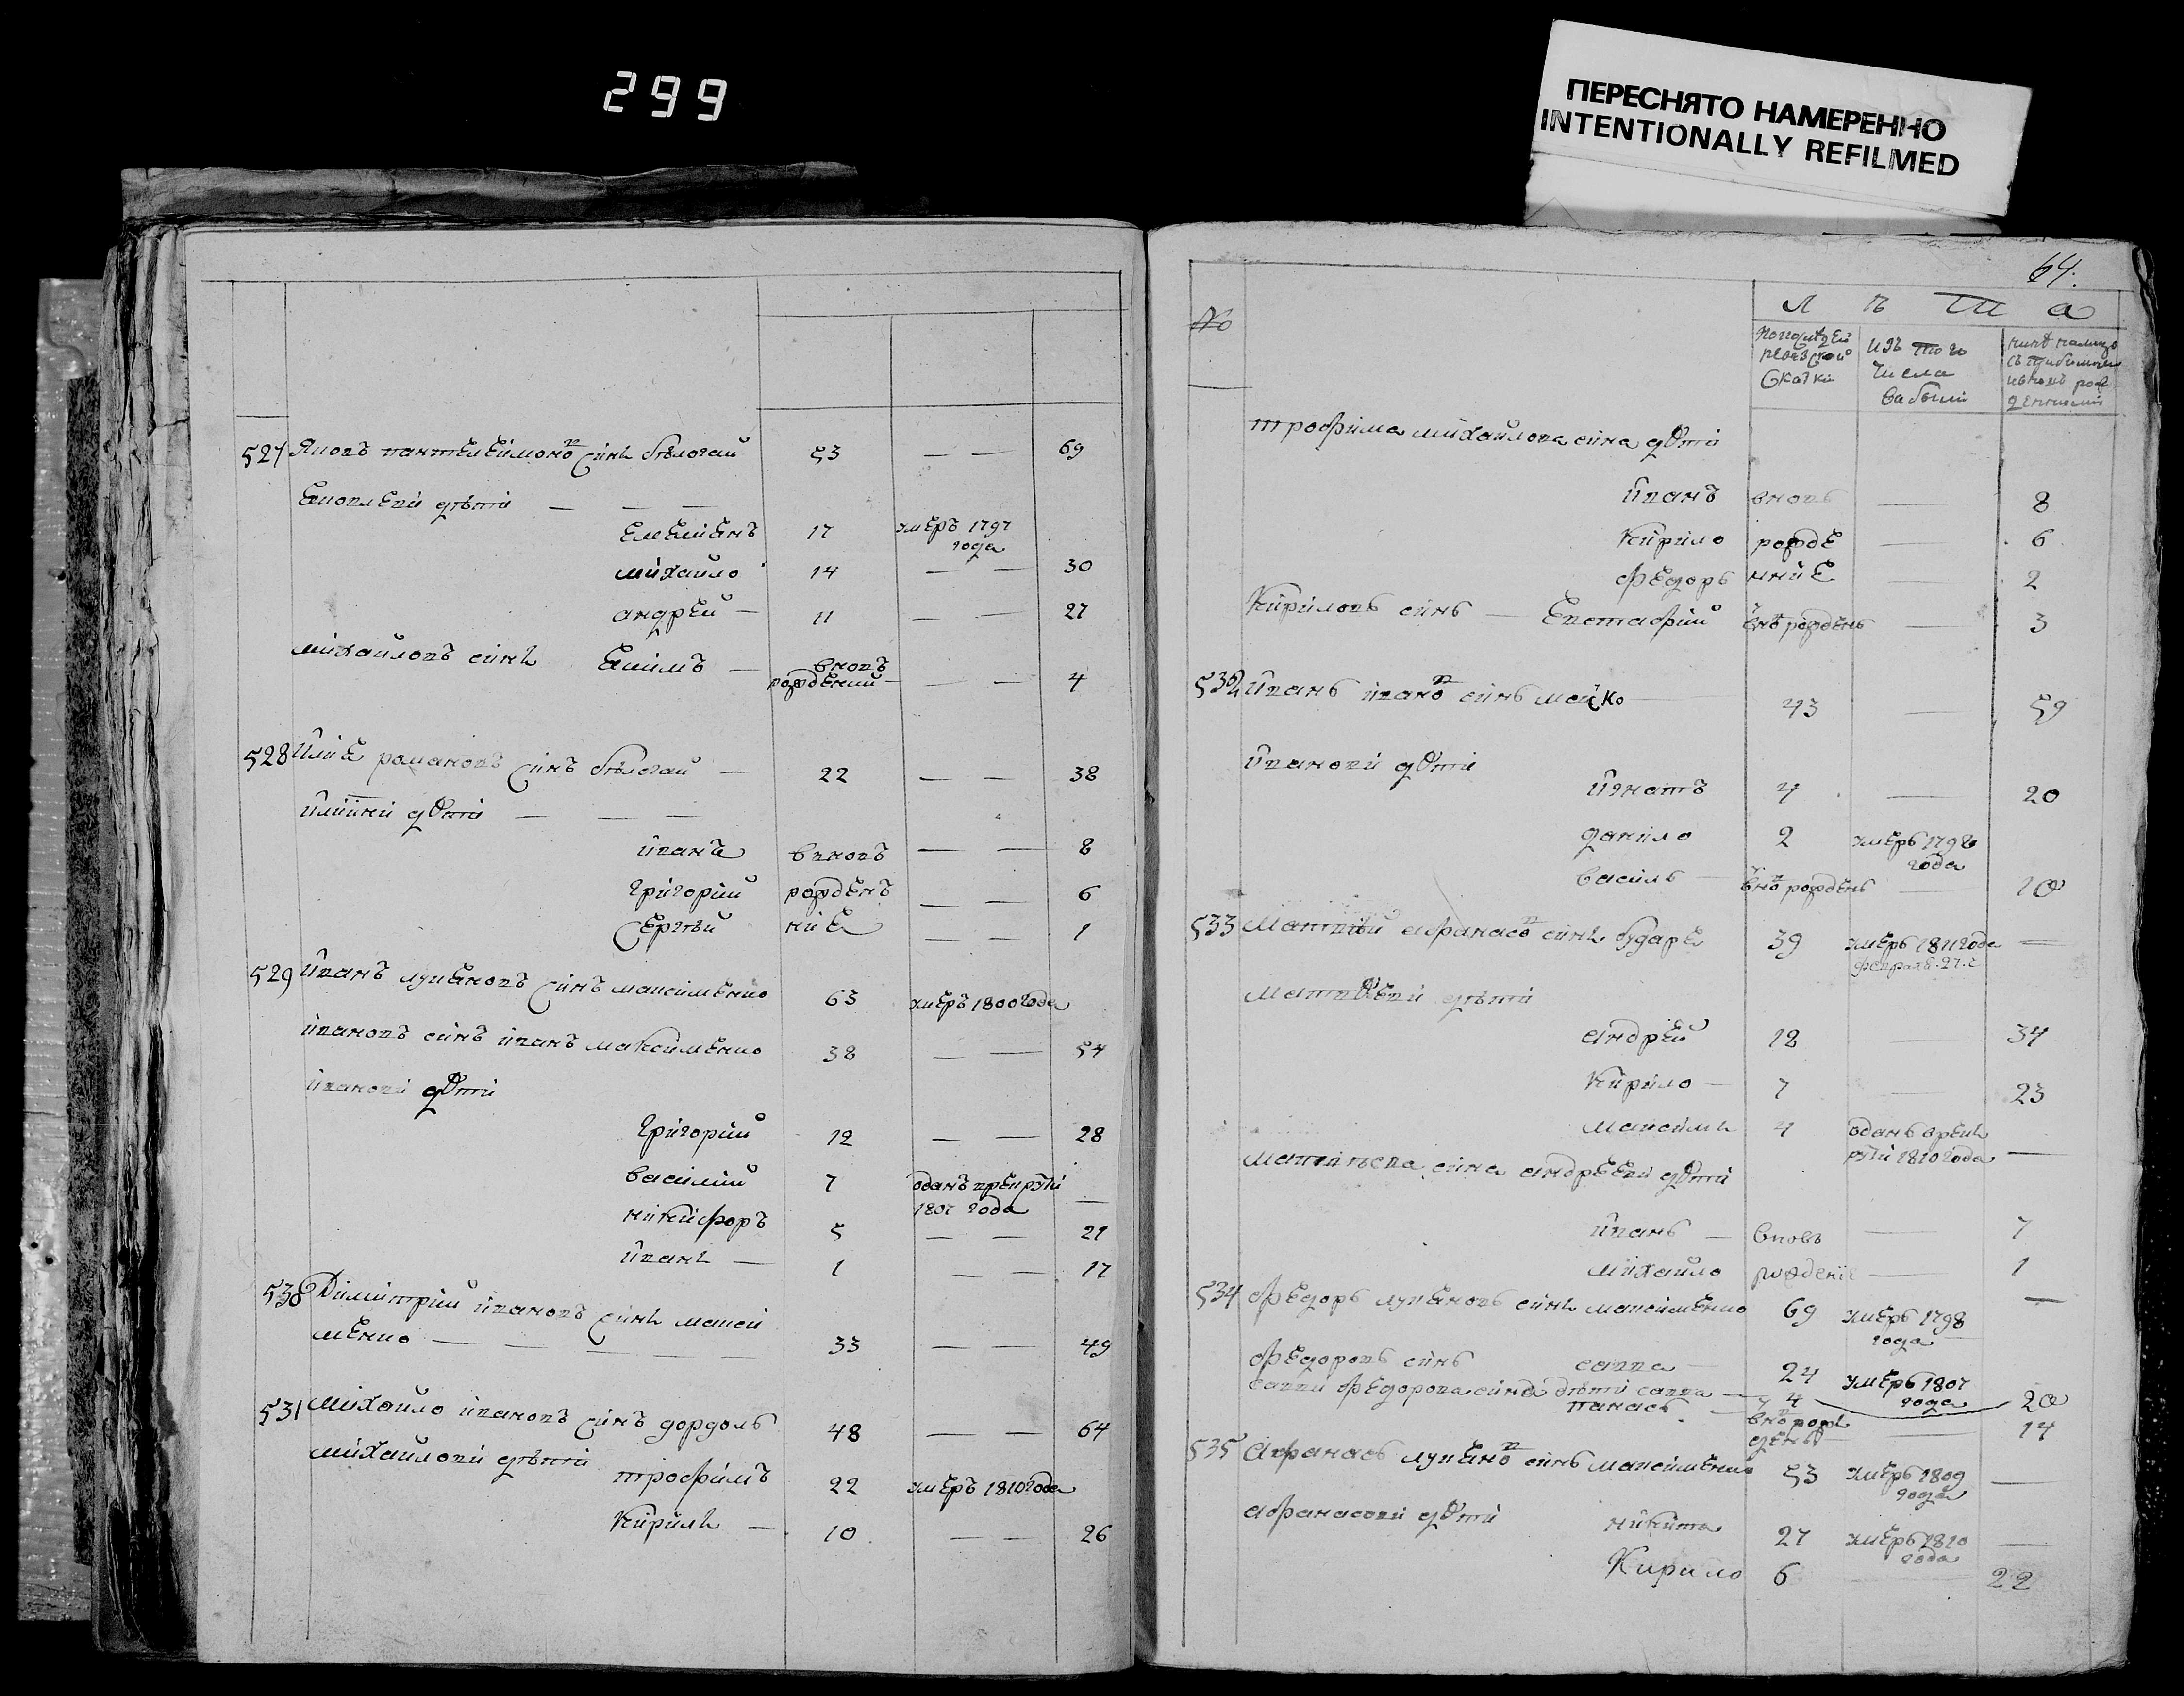 299
ПЕРЕСНЯТО НАМЕРЕННО
INTENTIONALLY REFILMED
527 Яковъ пантелеймоновъ синъ бѣлогай 53 — — 69
Яковлеви дѣти — — —
Емелианъ 17 умеръ 1797
года
михайло 14 — — 30
андрей — 11 — — 27
михайловъ синъ Екимъ — вновъ
рождений — — — 4
528 Илие романовъ синъ бѣлогай — 22 — — 38
Илиини дѣти — — —
иванъ вновъ — — 8
григорий рожденъ — — 6
Сергѣй ние — — 1
529 Иванъ лукяновъ синъ максименко 63 умеръ 1800 года
ивановъ синъ иванъ максименко 38 — — 54
иванови дѣти
григорий 12 — — 28
василий 7 оданъ врекрути —
1807 года
никифоръ 5 — — 21
иванъ — 1 — — 17
530 Димитрий ивановъ синъ макси
менко — — — — — 33 — — 49
531 михайло ивановъ синъ дордоль 48 — — 64
михайлови дѣти
трофимъ 22 умеръ 1810 года
Кирилъ — 10 — — 26
64.
№ Л ѣ т а
по последней
ревизской
Скаски
изъ того
числа
вабыли
нинѣ налицо
трофима михайлова сина дѣти
иванъ вновь — 8
Кирило рожде — 6
федоръ нние — 2
Кириловъ синъ — Евстафий вновъ рожденъ — 3
532 Иванъ ивановъ синъ мейко — 43 — 59
иванови дѣти
Игнатъ 4 — 20
данило 2 умеръ 1798
года
василь — вновъ рожденъ — 10
533 Матвѣй афанасовъ синъ бударе 39 умеръ 1811 года —
февраля. 27. ч
Матвѣеви дѣти
андрей 18 — 34
Кирило — 7 — 23
максимъ 4 оданъ врекъ
рути 1810 года —
матвѣева сина андрееви дѣти
иванъ — вновъ — 7
михайло рождение — 1
534 федоръ лукяновъ синъ максименко 69 умеръ 1798 —
года
федоровъ синъ савва — 24 умеръ 1807
савви федорова сина дѣти савва — 4 года 20
панасъ — вновъ рож
денъ — — 14
535 Афанась лукяновъ синъ максименко 53 умеръ 1809 —
года
афанасови дѣти никита 27 умеръ 1810 —
года
Кирило 6 — 22